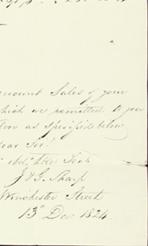 mount Sales of your
which we remitted to you
as specified below
Dear Sir
J & G. Sharp
Winchester Street
13th Dec 1824